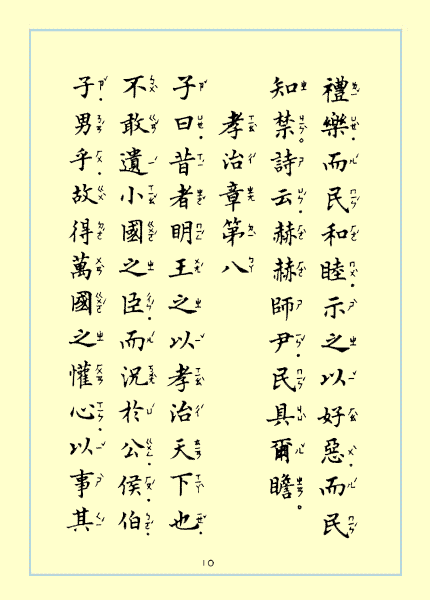 禮樂而民和睦示之以好惡而民
知禁。詩云赫赫師尹民具爾瞻。
孝治章第八
子曰昔者明王之以孝治天下也
不敢遺小國之臣而況於公侯伯
子男乎故得萬國之懽心以事其
10